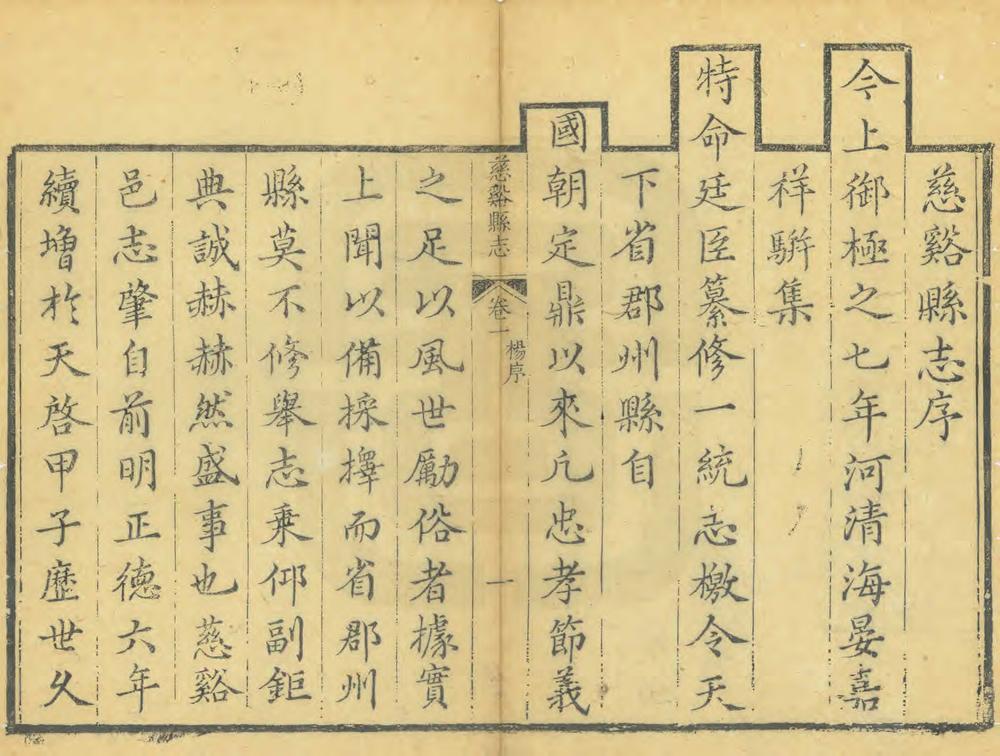 慈谿縣志序
今上御極之七年河清海晏嘉
祥騈集
特命廷臣纂修一統志檄令天
下省郡州縣自
國朝定鼎以來凢忠孝節義
慈谿縣志 卷一 楊序 一
之足以風世勵俗者據實
上聞以備採擇而省郡州
縣莫不修舉志乗仰副鉅
典誠赫赫然盛事也慈谿
邑志肇自前明正德六年
續增於天啓甲子歷世久